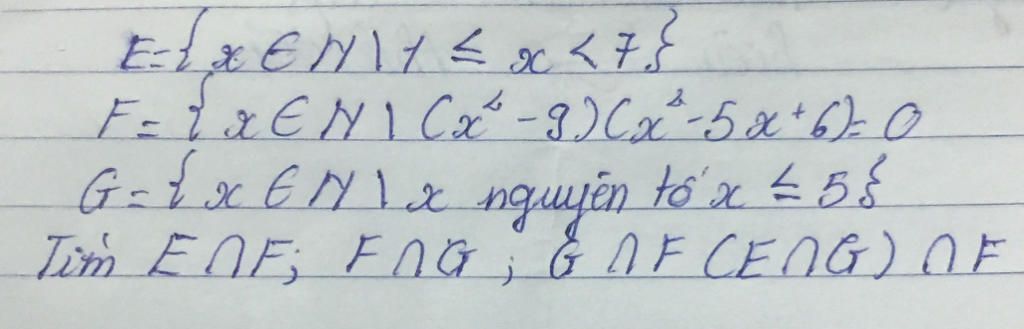 E={x ∈ N \ 1 ≤ x < 7}
F={x ∈ N \ (x² - 9)(x² - 5x + 6) = 0
G={x ∈ N \ x nguyên tố x ≤ 5}
Tìm E ∩ F; F ∩ G; G ∩ F (E ∩ G) ∩ F